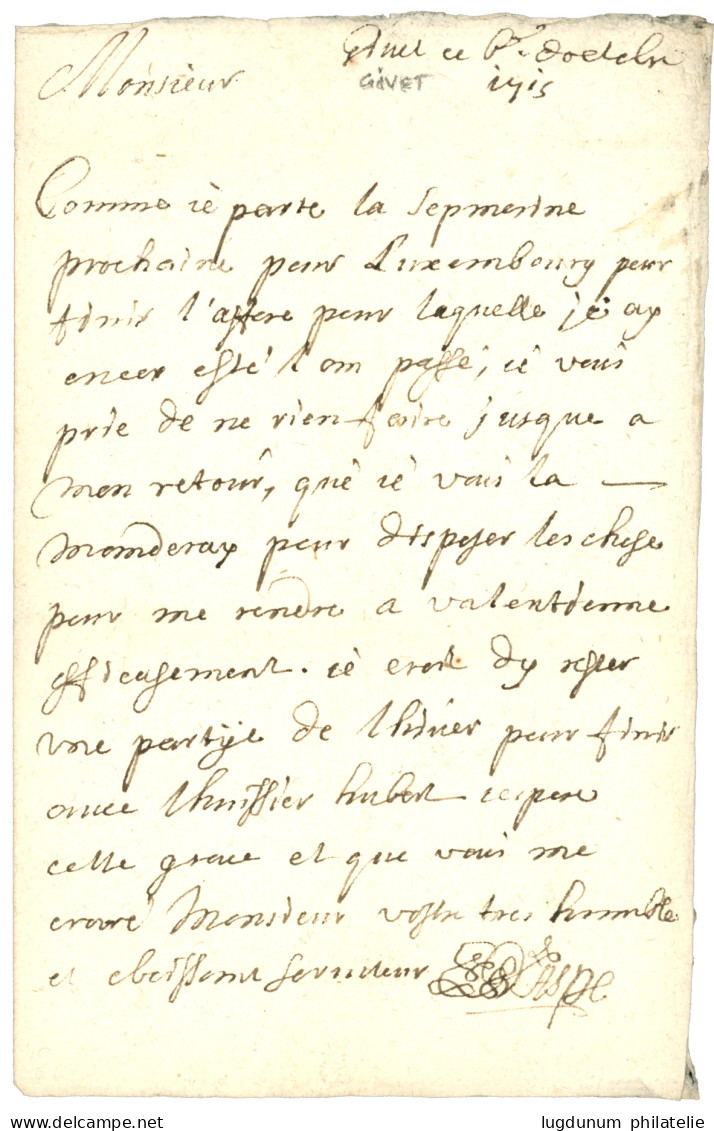 Givet ce 6e. doctobr
Monsieur
GIVET 1715
Comme ié parte la sepmenine
prochaine pour Luxembourg pour
finir l'affere pour laquelle jé ay
encor esté l'om passé, ié vous
prie de ne rien faire jusque a
mon retour, qué ié vous la
manderay pour disposer les chose
pour me rendre a valentienne
efficasement. ié croit dy rester
une partÿe de lhiuer pour finir
avec lhuissier hubert iespere
cette grace et que vous me
croiré Monsieur vostre tres humble
et obeissant seruiteur
lugdunum philatelie